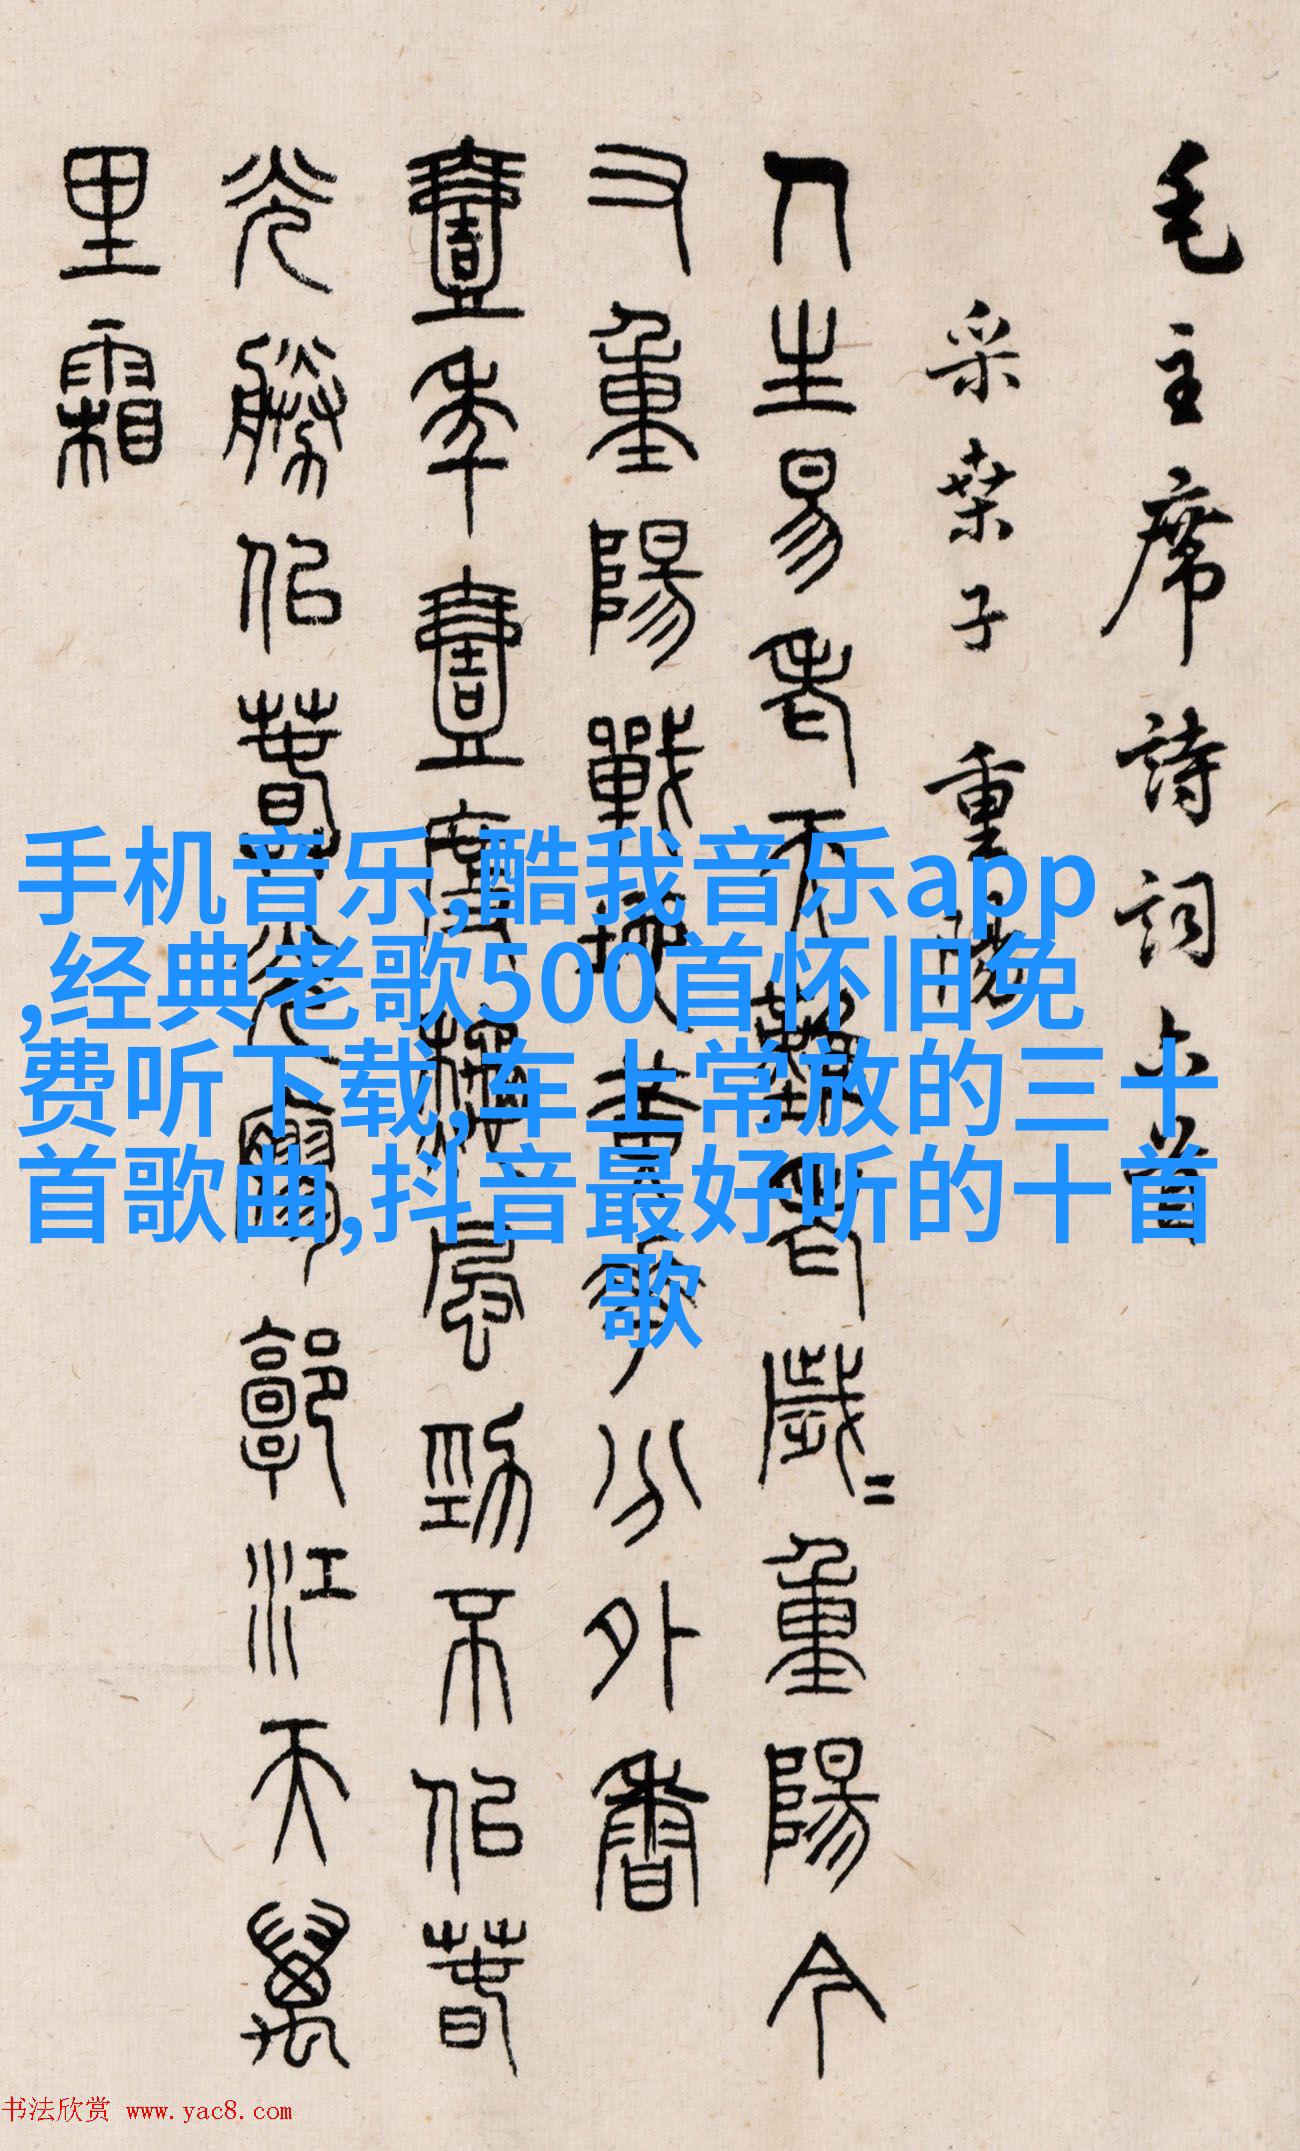 毛主席詩詞 首
采桒子 重陽
人生易老天難老歲〻重陽今
又重陽戰地黃華分外香
壹年壹度秋風勁不佀春
光勝佀春光寥郭江天萬
里霜
手机音乐,酷我音乐app
,经典老歌500首怀旧免
费听下载,车上常放的三十
首歌曲,抖音最好听的十首
歌
书法欣赏 www.yac8.com